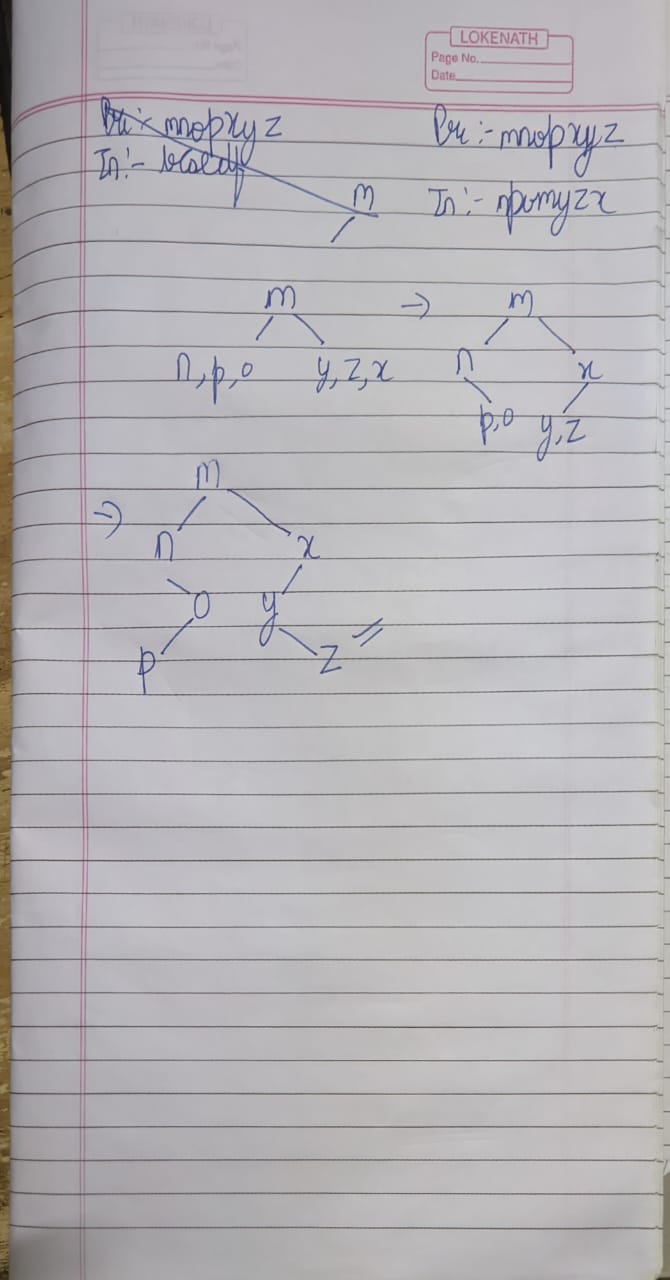 LOKENATH
Page No.
Date
Pre :- mnopxyz
In :-
m
Pre :- mnopxyz
In :- npomyzx
m → m
n, p, o y, z, x n x
p, o y, z
→ m
n x
o y
p z